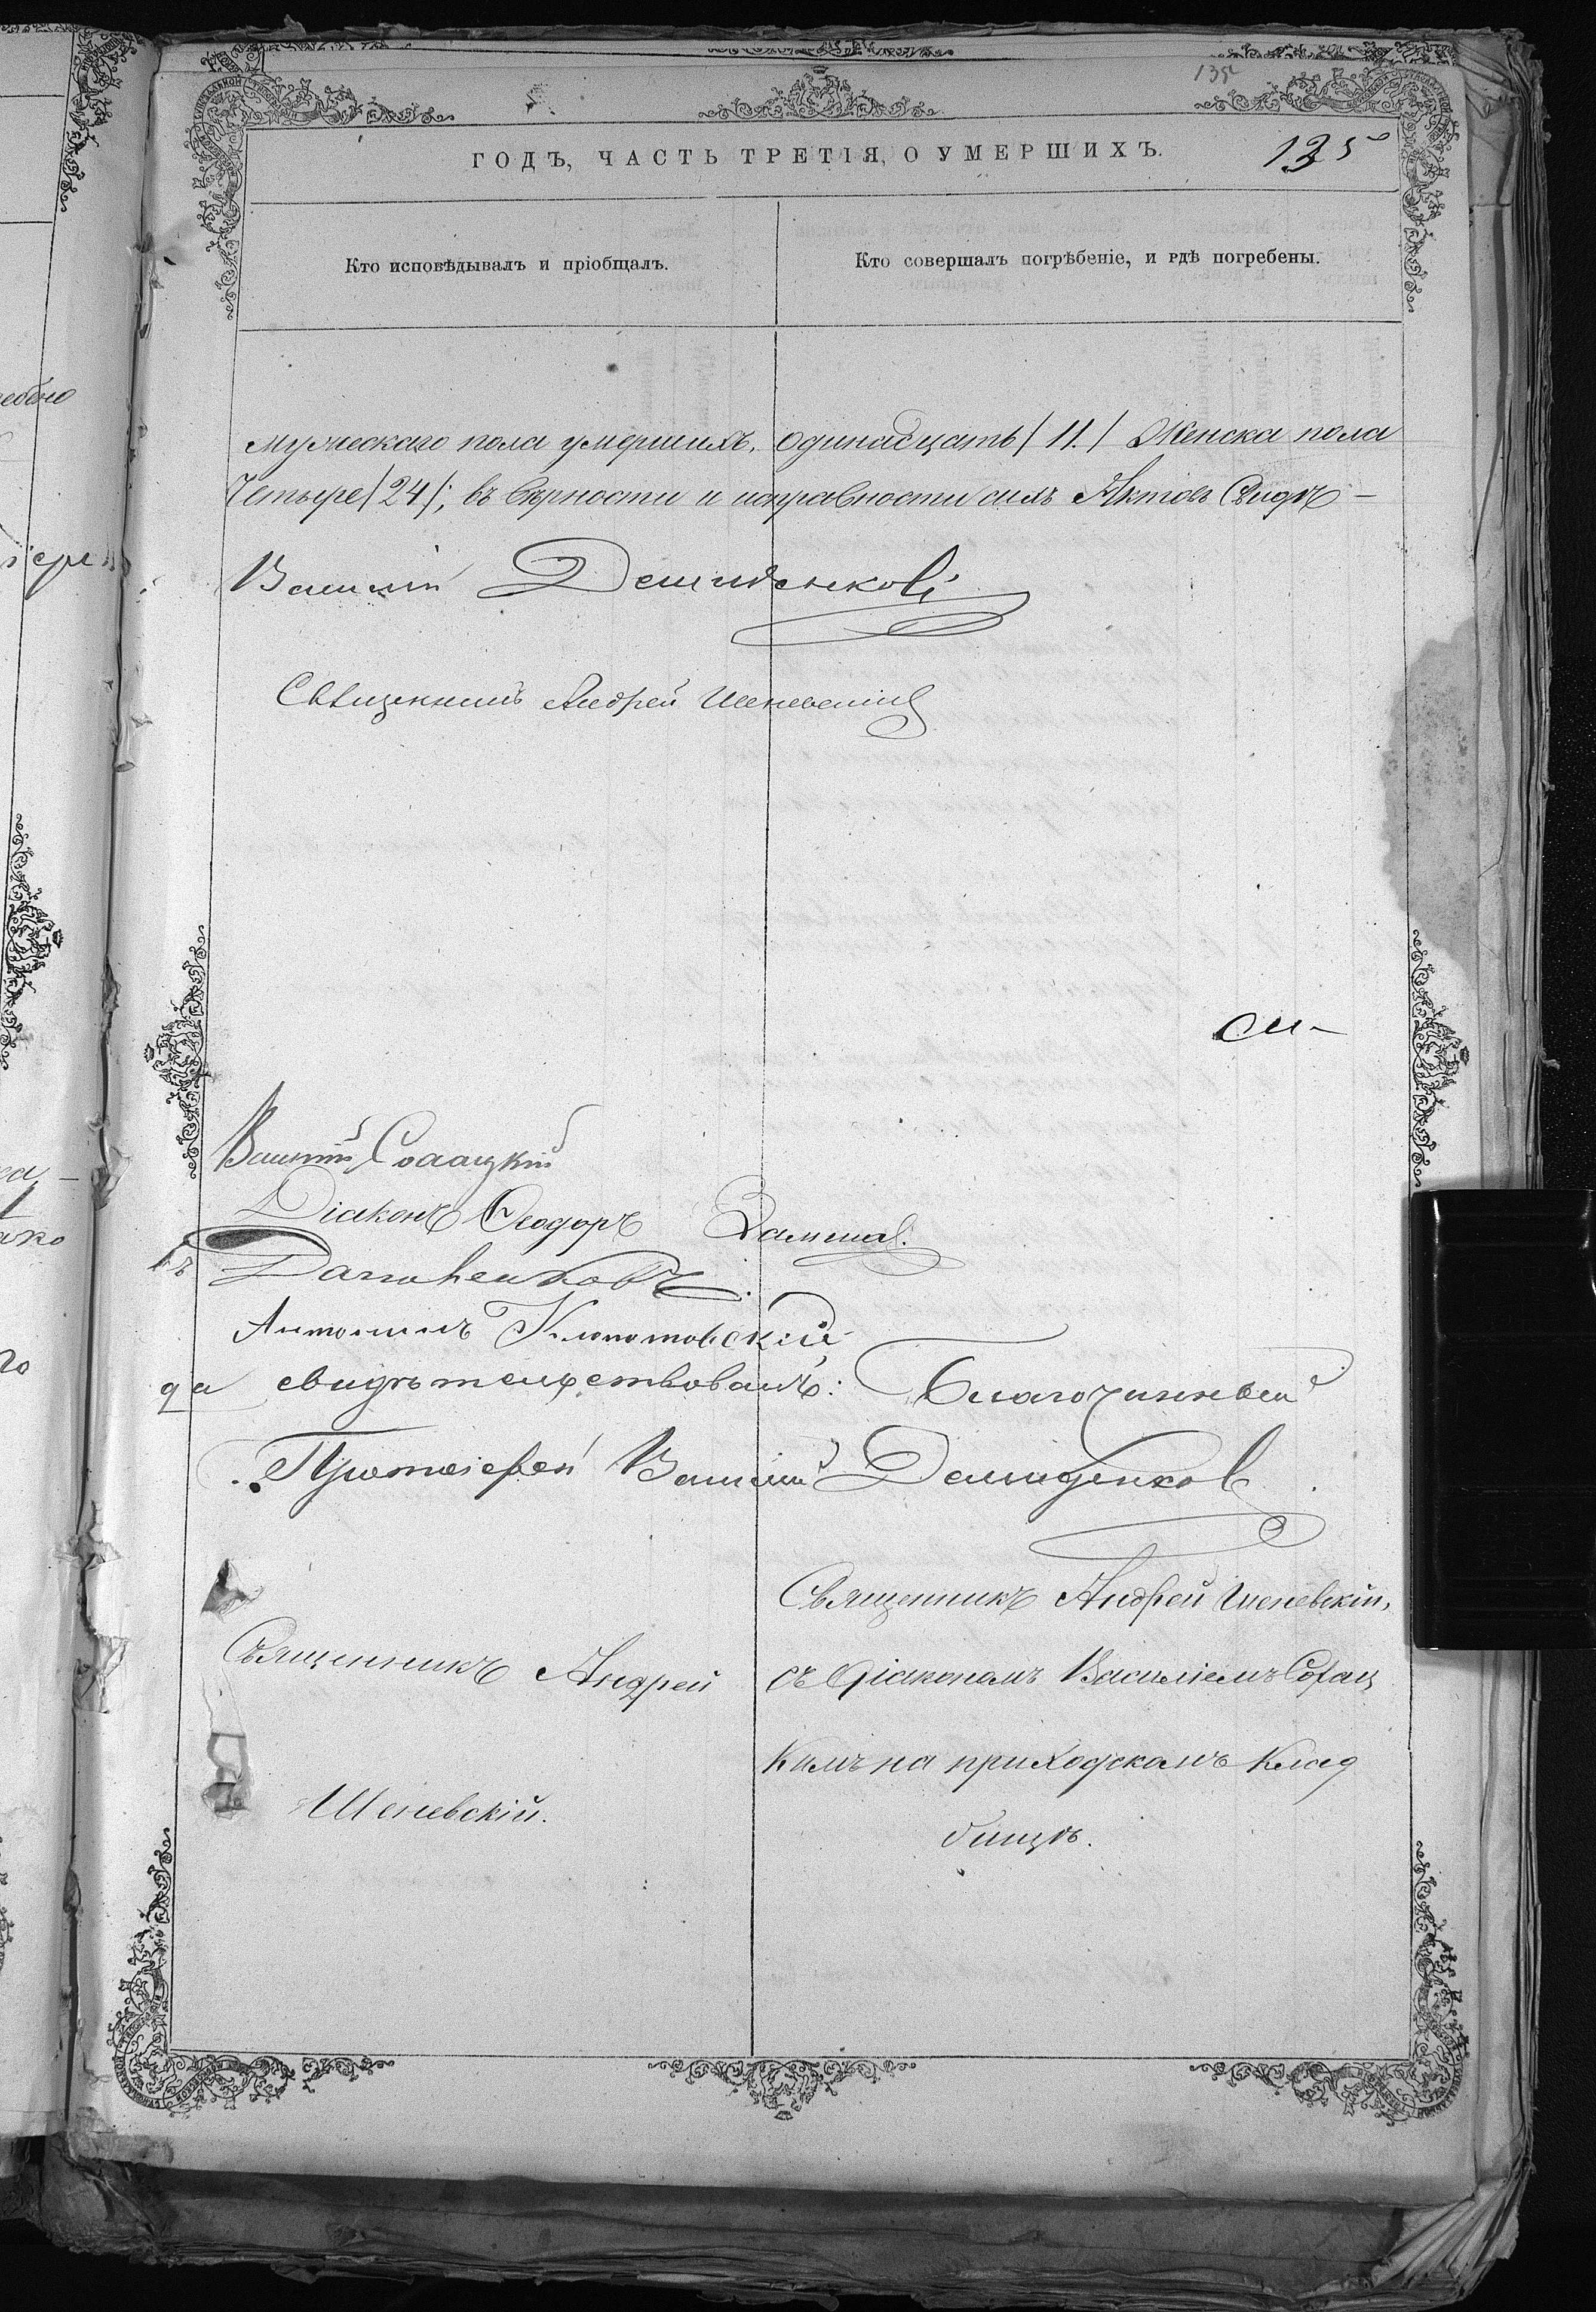 135
ГОДЪ, ЧАСТЬ ТРЕТІЯ, О УМЕРШИХЪ.
135
Кто исповѣдывалъ и пріобщалъ.
Кто совершалъ погрѣбеніе, и гдѣ погребены.
мужескаго пола умершихъ, одинадцать /11./ Женска пола
Четыре /24/; въ вѣрности и исправности сихъ Актовъ Свидѣ-
Василій Демиденковъ
Священникъ Андрей Шеневскій
см-
Василій
Діаконъ Ѳеодоръ
Антоній Клопотовскій
да свидѣтельствовалъ: Благочинный
Протоіерей Василій Демиденковъ
Священникъ Андрей
Шеневскій.
Священникъ Андрей Шеневскій,
съ Діакономъ Василіемъ Согац
кимъ на приходскомъ клад
бищѣ.